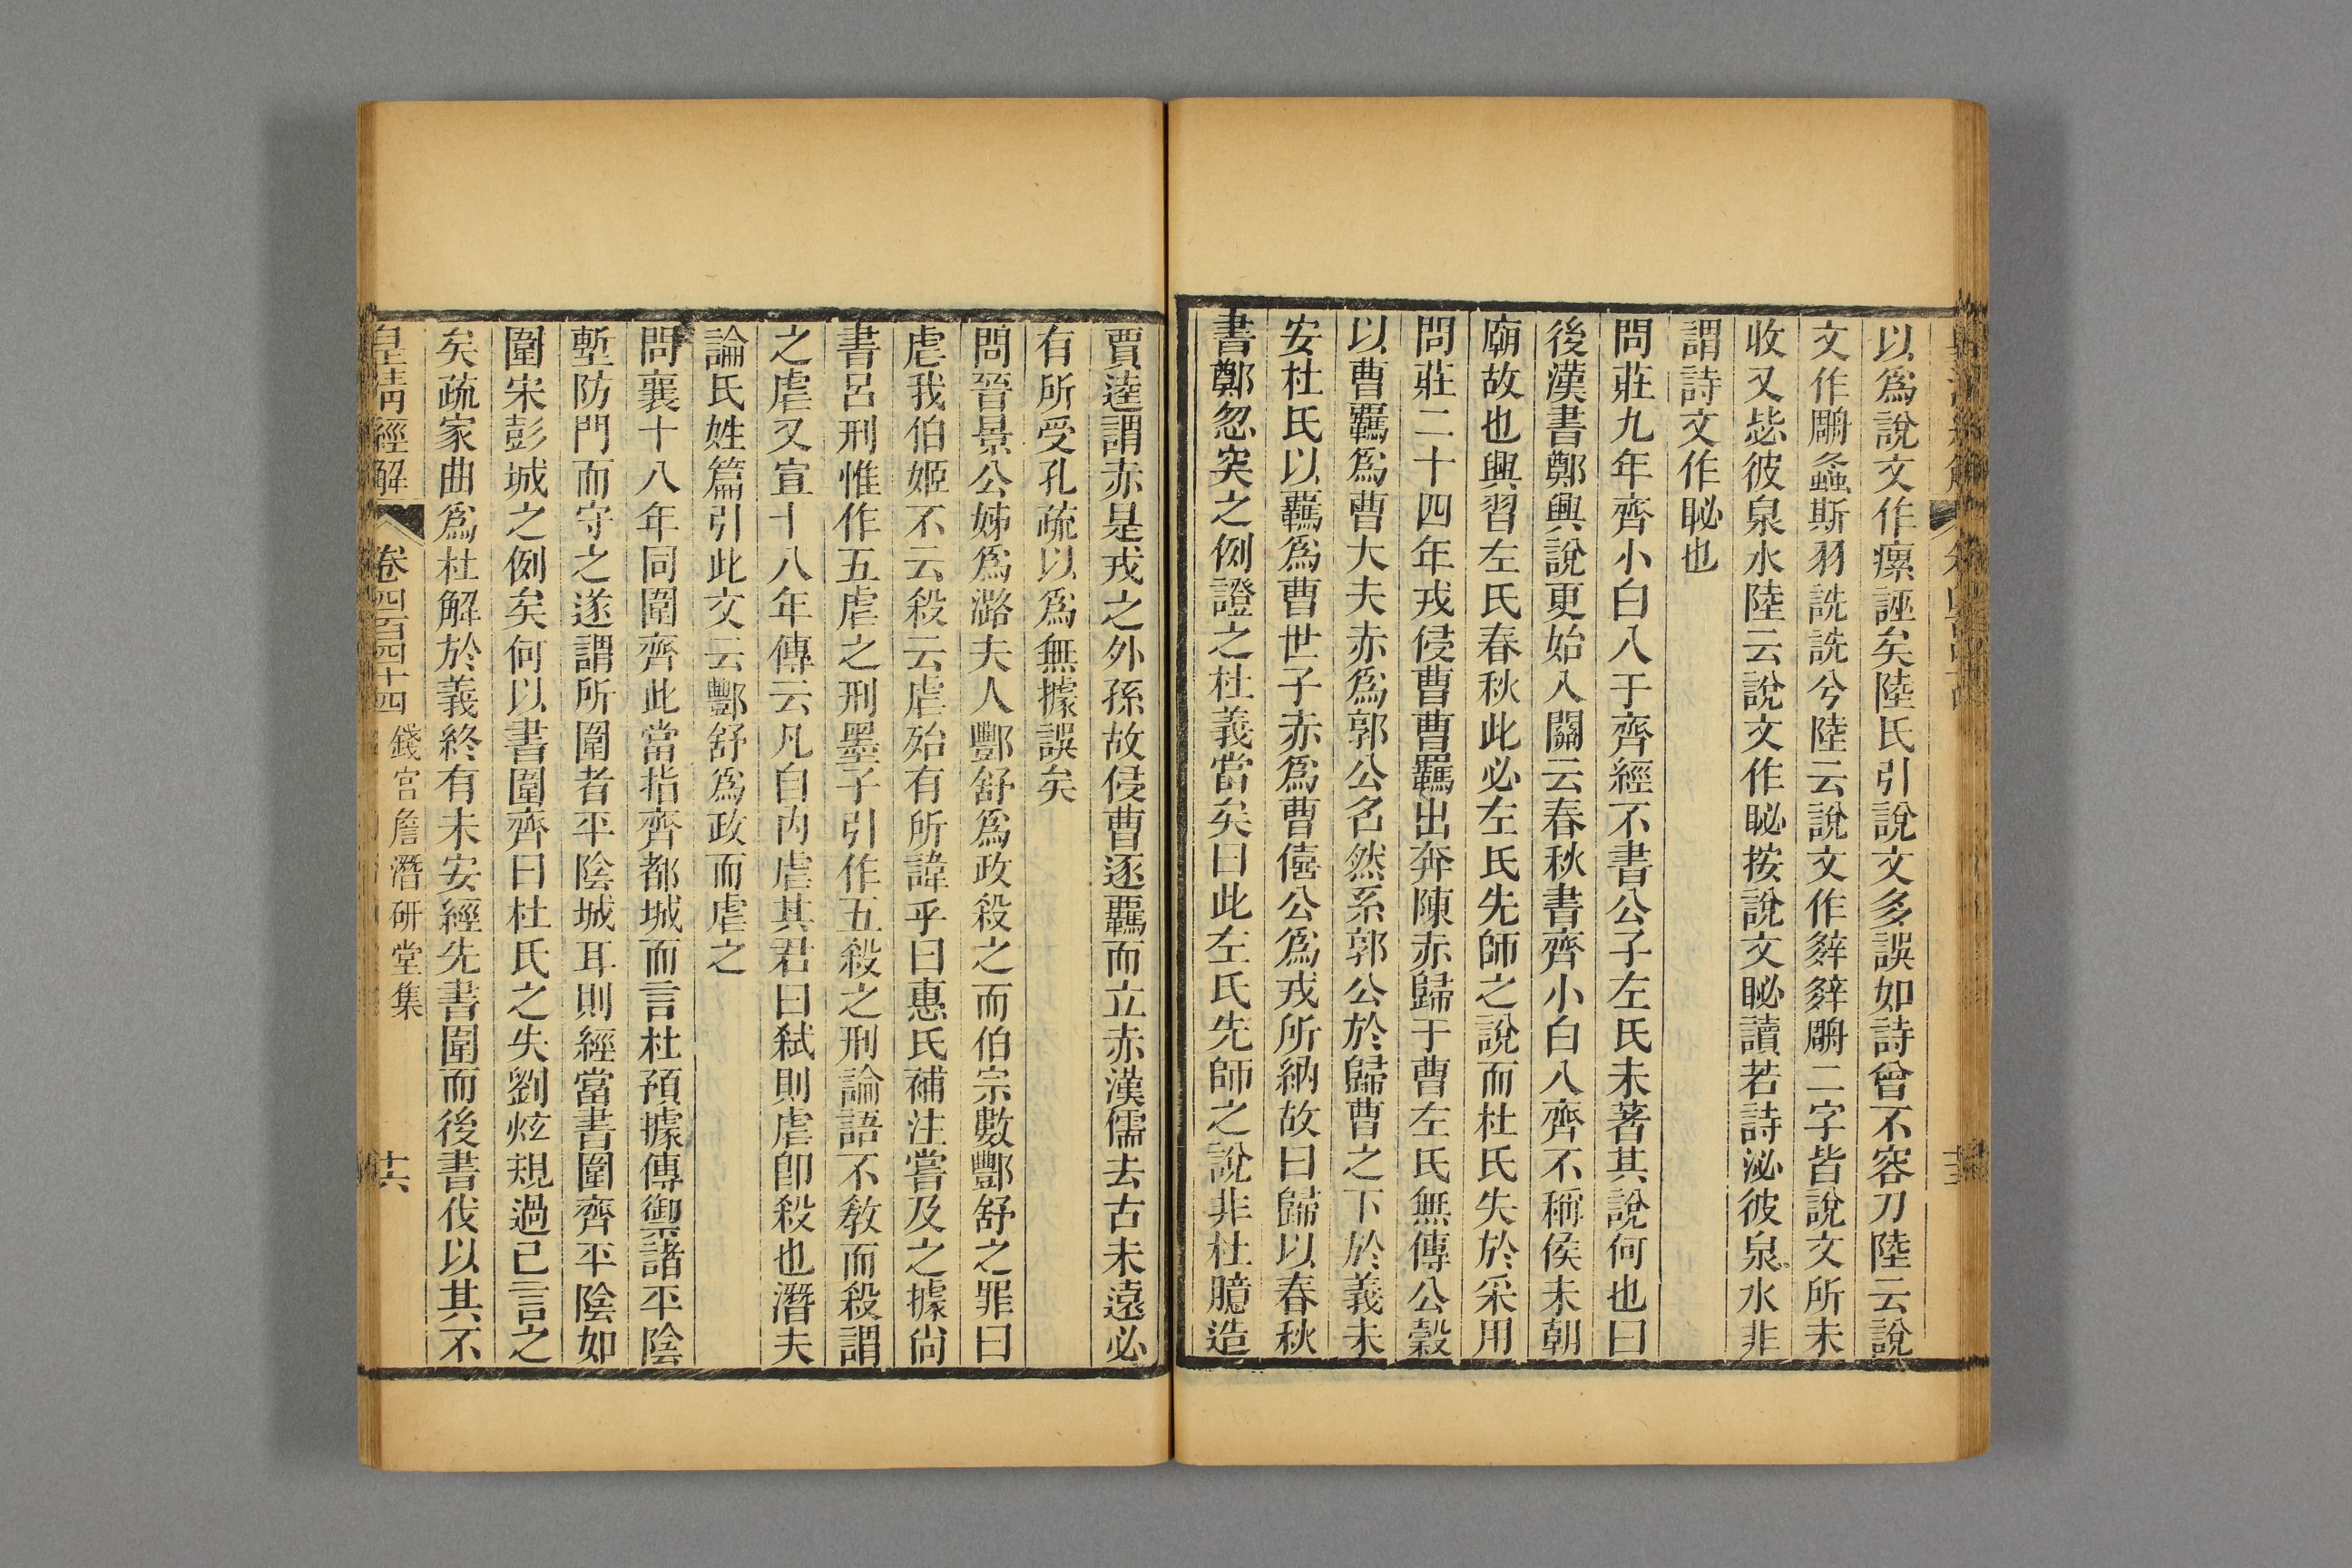 以爲說文作瘝誣矣陸氏引說文多誤如詩曾不容刀陸云說
文作𦩍螽斯羽詵詵兮陸云說文作𡖻𡖻𦩍二字皆說文所未
收又毖彼泉水陸云說文作䀣按說文䀣讀若詩泌彼泉水非
謂詩文作䀣也
問莊九年齊小白入于齊經不書公子左氏未著其說何也曰
後漢書鄭興說更始入關云春秋書齊小白入齊不稱侯未朝
廟故也興習左氏春秋此必左氏先師之說而杜氏失於采用
問莊二十四年戎侵曹曹羈出奔陳赤歸于曹左氏無傳公穀
以曹羈爲曹大夫赤爲郭公名然系郭公於歸曹之下於義未
安杜氏以羈爲曹世子赤爲曹僖公爲戎所納故曰歸以春秋
書鄭忽突之例證之杜義當矣曰此左氏先師之說非杜臆造
賈逵謂赤是戎之外孫故侵曹逐羈而立赤漢儒去古未遠必
有所受孔疏以爲無據誤矣
問晉景公姊爲潞夫人酆舒爲政殺之而伯宗數酆舒之罪曰
虐我伯姬不云殺云虐殆有所諱乎曰惠氏補注嘗及之據尙
書呂刑惟作五虐之刑墨子引作五殺之刑論語不敎而殺謂
之虐又宣十八年傳云凡自內虐其君曰弒則虐卽殺也潛夫
論氏姓篇引此文云酆舒爲政而虐之
問襄十八年同圍齊此當指齊都城而言杜預據傳禦諸平陰
塹防門而守之遂謂所圍者平陰城耳則經當書圍齊平陰如
圍宋彭城之例矣何以書圍齊曰杜氏之失劉炫規過已言之
矣疏家曲爲杜解於義終有未安經先書圍而後書伐以其不
皇淸經解 卷四百四十四 錢宮詹潛研堂集 十六